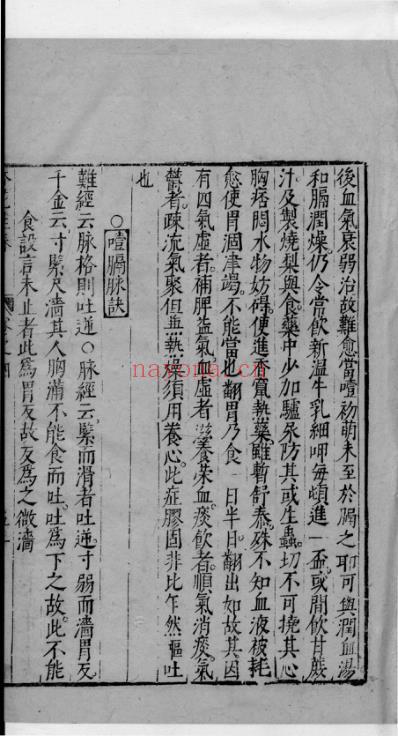 後血氣衰弱治故難愈當噎初萌未至於膈之耶可與潤血湯
和膈潤燥仍令常飲新溫牛乳細呷每頓進一盃或間飲甘蔗
汁及製燒梨與食藥中少加驢尿防其或生蟲切不可撓其心
胸痞悶水物妨碍便進香竄熱藥雖暫舒泰殊不知血液被耗
愈使胃涸津竭不能當也翻胃乃食一日半日翻出如故其因
有四氣虛者補脾益氣血虛者滋養荣血痰飲者順氣消痰氣
鬱者疎流氣聚但無執燥須用養心此症膠固非比乍然嘔吐
也
○噎膈脉訣
難經云脉格則吐逆○脉經云緊而滑者吐逆寸弱而濇胃反
千金云寸緊尺濇其人胸滿不能食而吐吐為下之故此不能
食設言未止者此為胃反故反為之微濇
nayona.cn